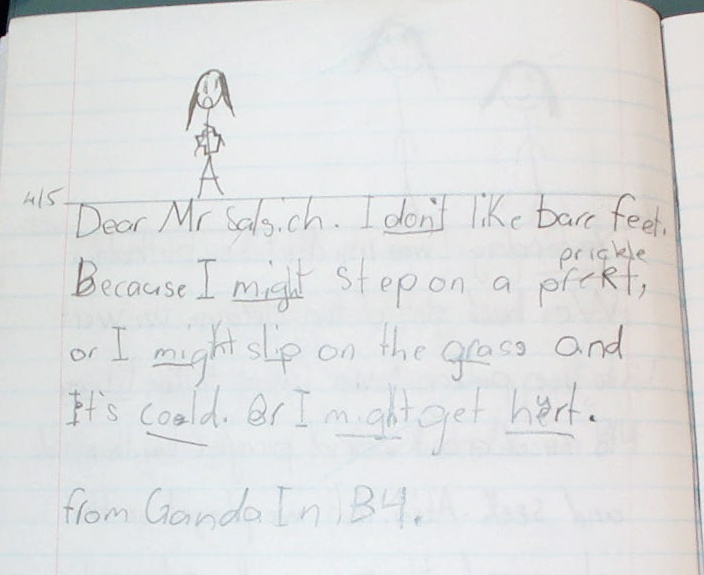 4/5
Dear Mr Salsich. I don't like bare feet.
prickle
Because I might step on a prekt,
or I might slip on the grass and
It's coold. Or I might get hert.
from Ganda In B4.